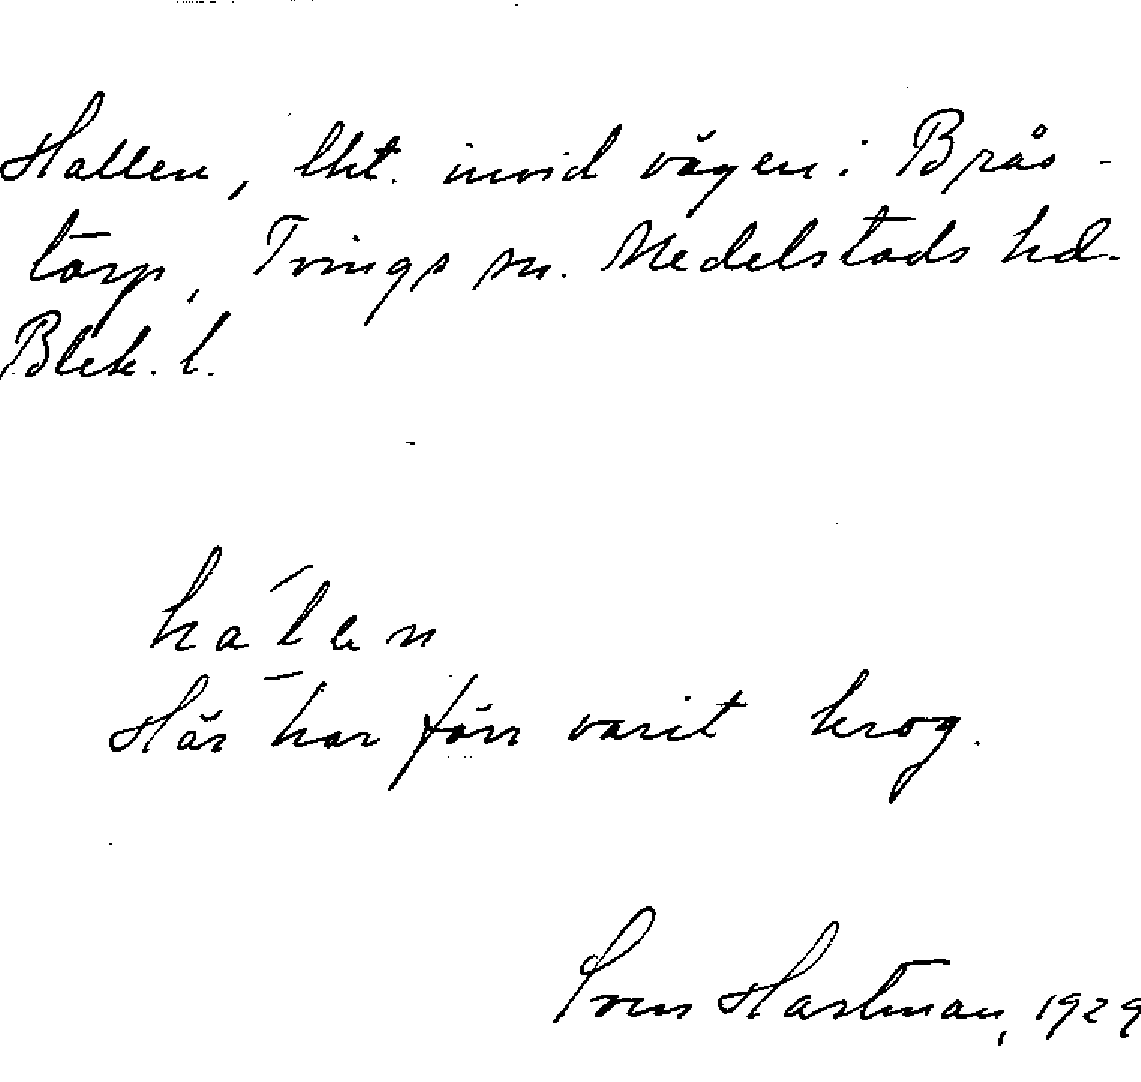 Hallen, lht. invid vägen i Brås-
torp, Tvings sn. Medelstads hd.
Blek. l.
ha´l en
Här har förr varit krog.
Sven Hartman, 1929